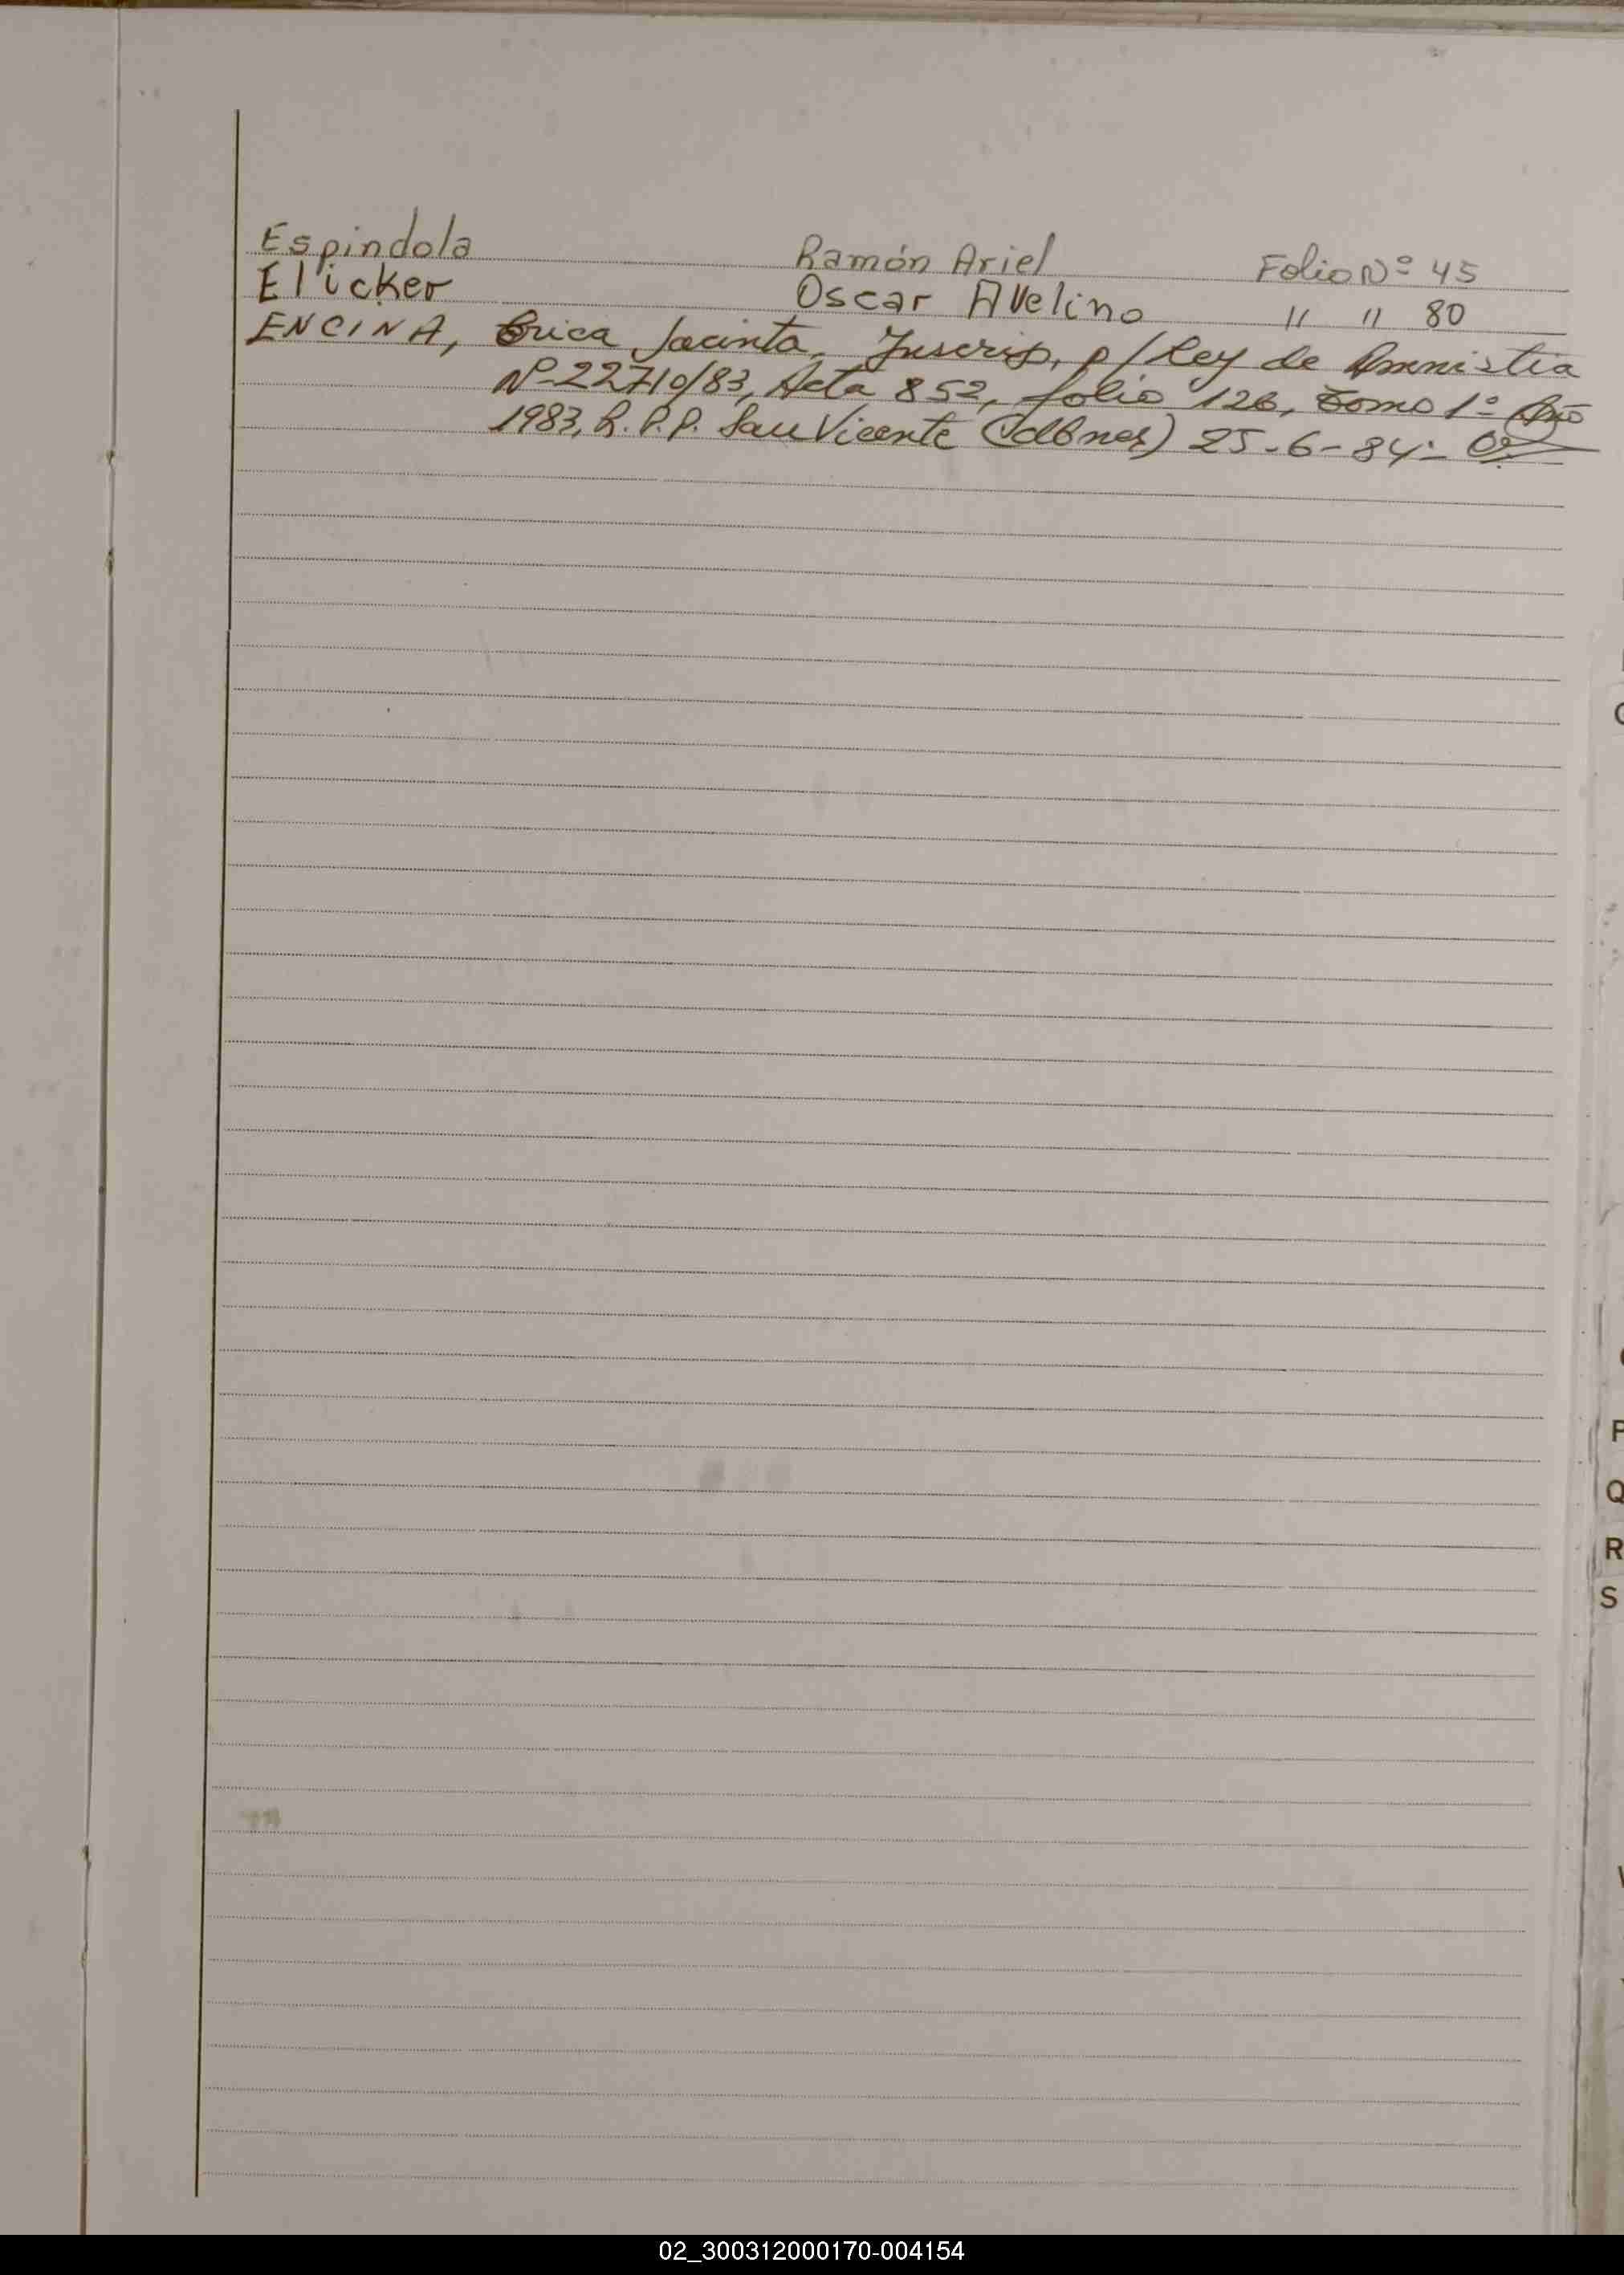 Espindola Ramón Ariel Folio Nº 45
Elicker Oscar Avelino " " 80
ENCINA, Erica Jacinta, Inscrip. p/Ley de Amnistia
Nº 22710/83, Acta 852, folio 126, Tomo 1º Año
1983, R.P.P. San Vicente 25-6-84-
Q
R
S
02_300312000170-004154